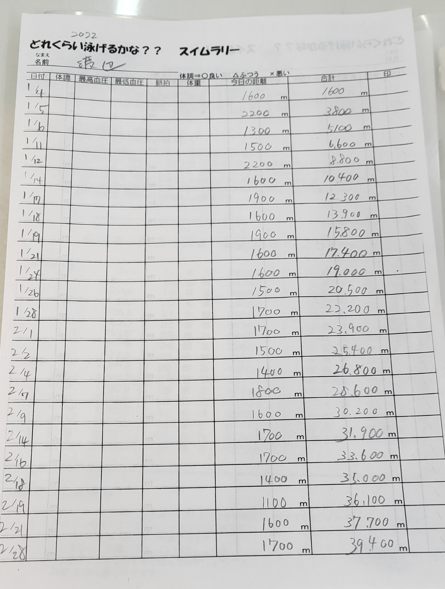 2022
どれくらい泳げるかな？？　スイムラリー
なまえ
名前
体調→○良い　△ふつう　×悪い
日付 体調 最高血圧 最低血圧 脈拍 体重 今日の距離 合計 印
1/4 1600 m 1600 m
1/5 2200 m 3800 m
1/6 1300 m 5100 m
1/11 1500 m 6,600 m
1/12 2200 m 8800 m
1/14 1600 m 10400 m
1/17 1900 m 12300 m
1/18 1600 m 13900 m
1/19 1900 m 15800 m
1/21 1600 m 17.400 m
1/24 1600 m 19.000 m
1/26 1500 m 20,500 m
1/28 1700 m 22,200 m
2/1 1700 m 23,900 m
2/2 1500 m 25,400 m
2/4 1400 m 26,800 m
2/7 1800 m 28,600 m
2/9 1600 m 30.200 m
2/14 1700 m 31,900 m
2/16 1700 m 33,600 m
2/18 1400 m 35,000 m
2/19 1100 m 36,100 m
2/21 1600 m 37,700 m
2/28 1700 m 39,400 m